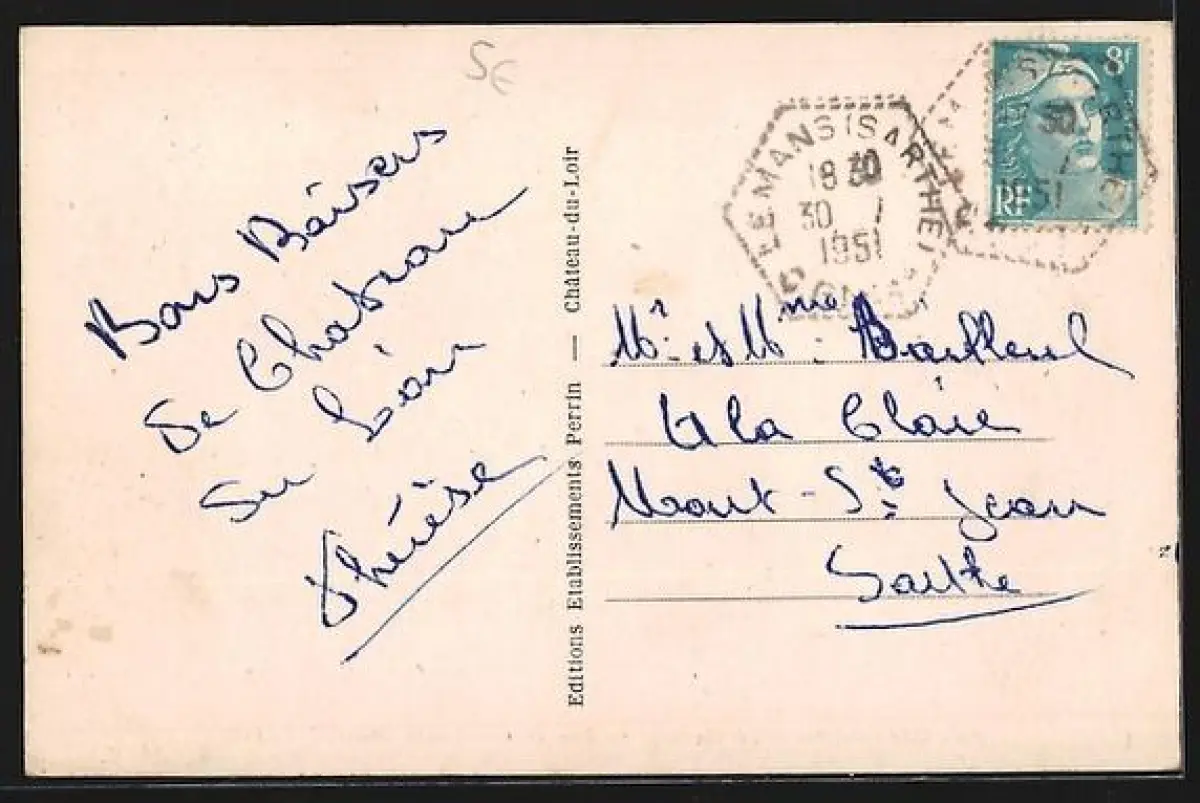 5€
Bons Baisers
de Chateau
du Loir
Thérèse
Editions Etablissements Perrin — Château-du-Loir
LE MANS (SARTHE)
18 30
30
1951
8f
RF
30
1951
Mr et Mme
A la
Mont - St Jean
Sarthe